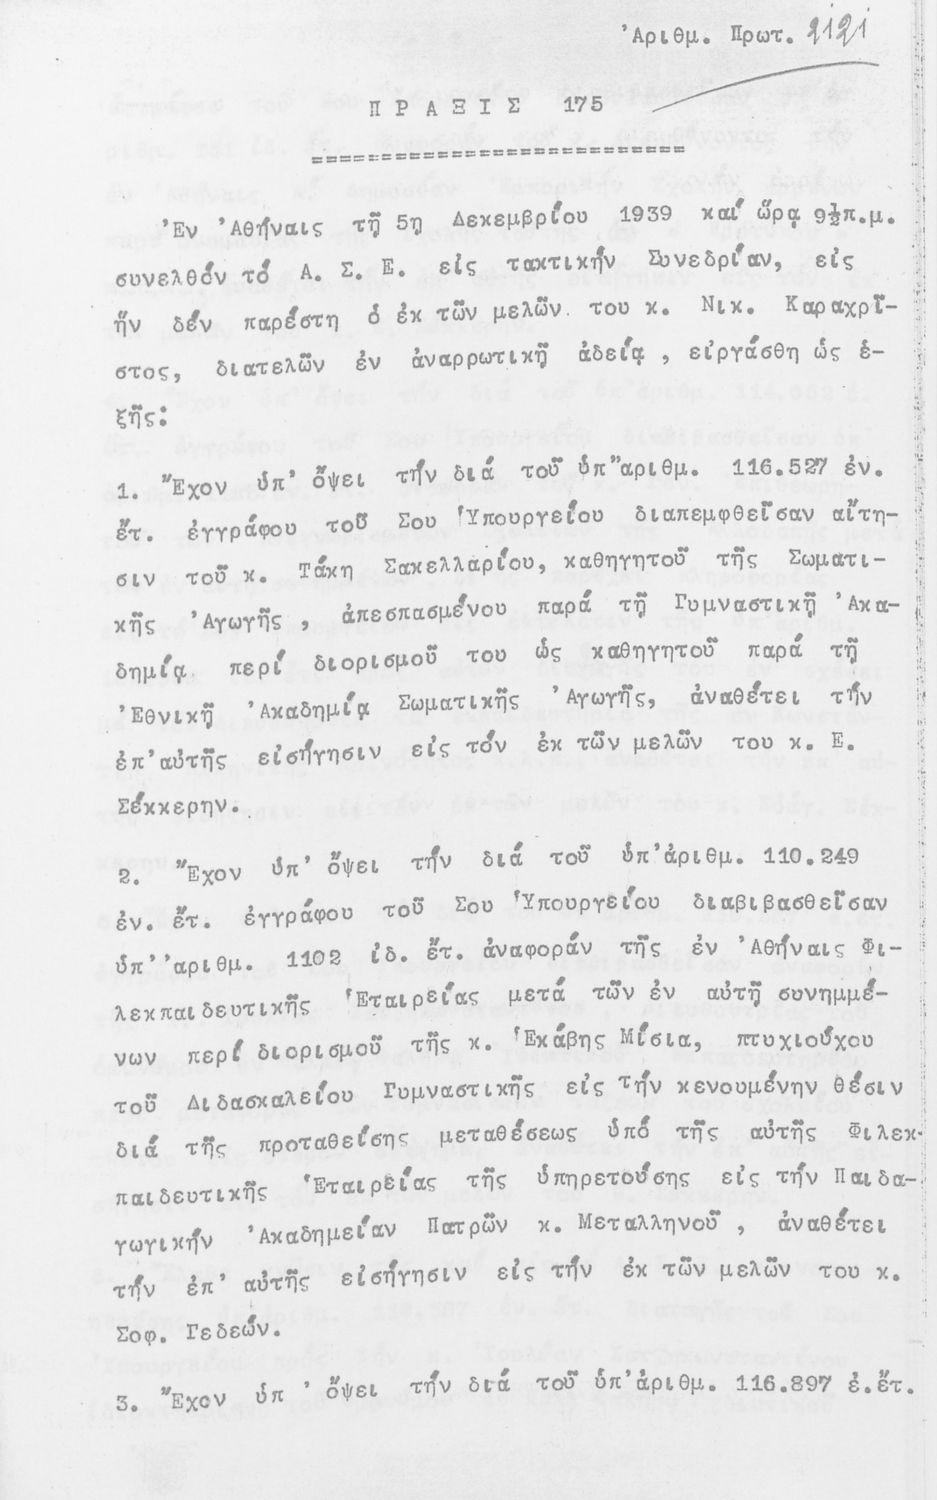 Ἀριθμ. Πρωτ. 2121
ΠΡΑΞΙΣ 175
============================
Ἐν Ἀθήναις τῇ 5ῃ Δεκεμβρίου 1939 καί ὥρᾳ 9½π.μ.
συνελθόν τό Α. Σ. Ε. εἰς τακτικήν Συνεδρίαν, εἰς
ἥν δέν παρέστη ὁ ἐκ τῶν μελῶν του κ. Νικ. Καραχρῖ-
στος, διατελῶν ἐν ἀναρρωτικῇ ἀδείᾳ, εἰργάσθη ὡς ἑ-
ξῆς:
1. Ἔχον ὑπ' ὄψει τήν διά τοῦ ὑπ"αριθμ. 116.527 ἐν.
ἔτ. ἐγγράφου τοῦ Σου Ὑπουργείου διαπεμφθεῖσαν αἴτη-
σιν τοῦ κ. Τάκη Σακελλαρίου, καθηγητοῦ τῆς Σωματι-
κῆς Ἀγωγῆς, ἀπεσπασμένου παρά τῇ Γυμναστικῇ Ἀκα-
δημίᾳ, περί διορισμοῦ του ὡς καθηγητοῦ παρά τῇ
Ἐθνικῇ Ἀκαδημίᾳ Σωματικῆς Ἀγωγῆς, ἀναθέτει τήν
ἐπ'αὐτῆς εἰσήγησιν εἰς τόν ἐκ τῶν μελῶν του κ. Ε.
Σέκκερην.
2. Ἔχον ὑπ' ὄψει τήν διά τοῦ ὑπ'ἀριθμ. 110.249
ἐν. ἔτ. ἐγγράφου τοῦ Σου Ὑπουργείου διαβιβασθεῖσαν
ὑπ''αριθμ. 1102 ἰδ. ἔτ. ἀναφοράν τῆς ἐν Ἀθήναις Φι-
λεκπαιδευτικῆς Ἑταιρείας μετά τῶν ἐν αὐτῇ συνημμέ-
νων περί διορισμοῦ τῆς κ. Ἑκάβης Μίσια, πτυχιούχου
τοῦ Διδασκαλείου Γυμναστικῆς εἰς τήν κενουμένην θέσιν
διά τῆς προταθείσης μεταθέσεως ὑπό τῆς αὐτῆς Φιλεκ-
παιδευτικῆς Ἑταιρείας τῆς ὑπηρετούσης εἰς τήν Παιδα-
γωγικήν Ἀκαδημείαν Πατρῶν κ. Μεταλληνοῦ, ἀναθέτει
τήν ἐπ' αὐτῆς εἰσήγησιν εἰς τήν ἐκ τῶν μελῶν του κ.
Σοφ. Γεδεών.
3. Ἔχον ὑπ ' ὄψει τήν διά τοῦ ὑπ'ἀριθμ. 116.897 ἐ.ἔτ.